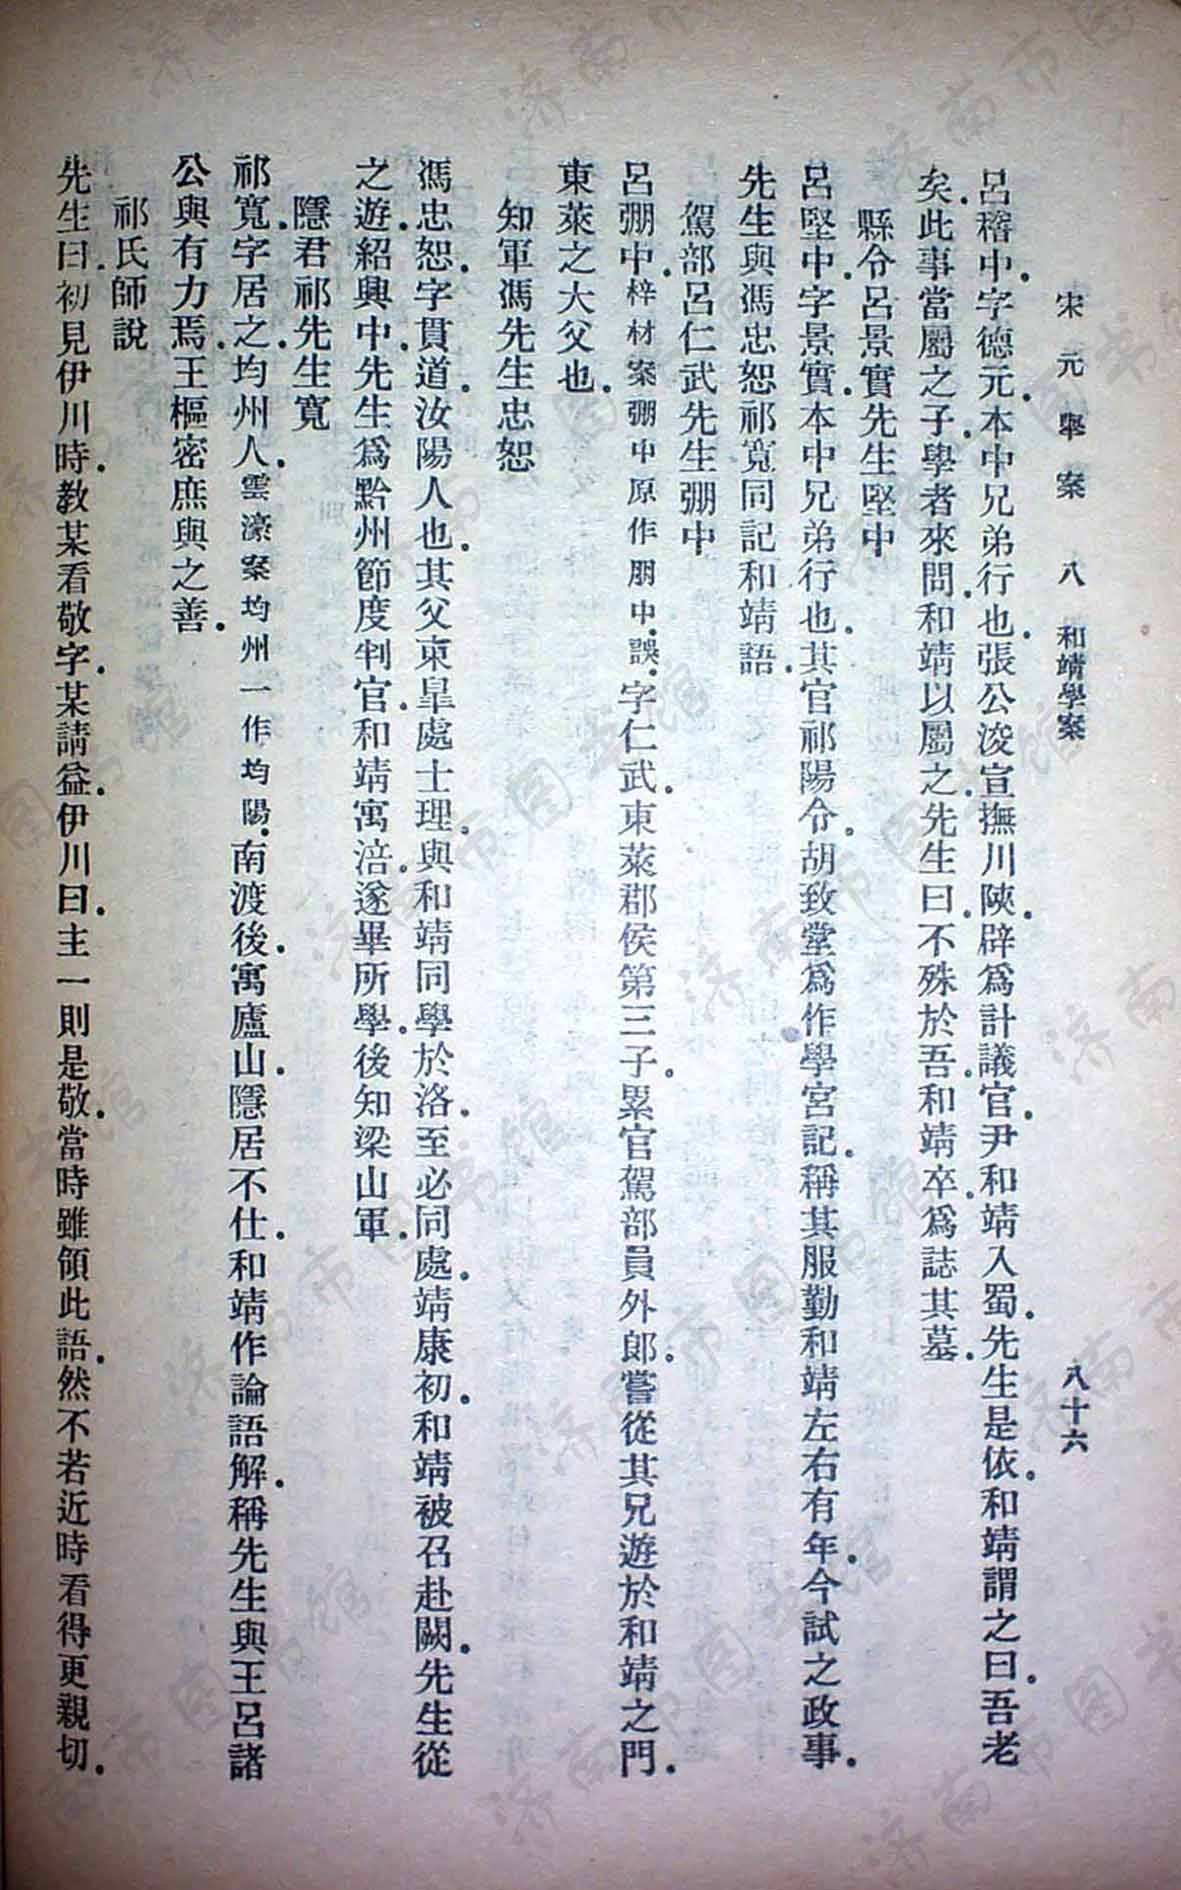 宋元學案　八　和靖學案　八十六
呂稽中．字德元．本中兄弟行也．張公浚宣撫川陝．辟爲計議官．尹和靖入蜀．先生是依．和靖謂之曰．吾老
矣．此事當屬之子．學者來問．和靖以屬之．先生曰．不殊於吾．和靖卒．爲誌其墓．
縣令呂景實先生堅中
呂堅中．字景實．本中兄弟行也．其官祁陽令．胡致堂爲作學宮記．稱其服勤和靖左右有年．今試之政事．
先生與馮忠恕祁寬同記和靖語．
駕部呂仁武先生弸中
呂弸中．梓材案弸中原作朋中．誤．字仁武．東萊郡侯第三子．累官駕部員外郎．嘗從其兄遊於和靖之門．
東萊之大父也．
知軍馮先生忠恕
馮忠恕．字貫道．汝陽人也．其父東臯處士理．與和靖同學於洛．至必同處．靖康初．和靖被召赴闕．先生從
之遊．紹興中．先生爲黔州節度判官．和靖寓涪．遂畢所學．後知梁山軍．
隱君祁先生寬
祁寬．字居之．均州人．雲濠案均州一作均陽．南渡後．寓廬山．隱居不仕．和靖作論語解．稱先生與王呂諸
公與有力焉．王樞密庶與之善．
祁氏師說
先生曰．初見伊川時．教某看敬字．某請益．伊川曰．主一則是敬．當時雖領此語．然不若近時看得更親切．
濟南市图书馆